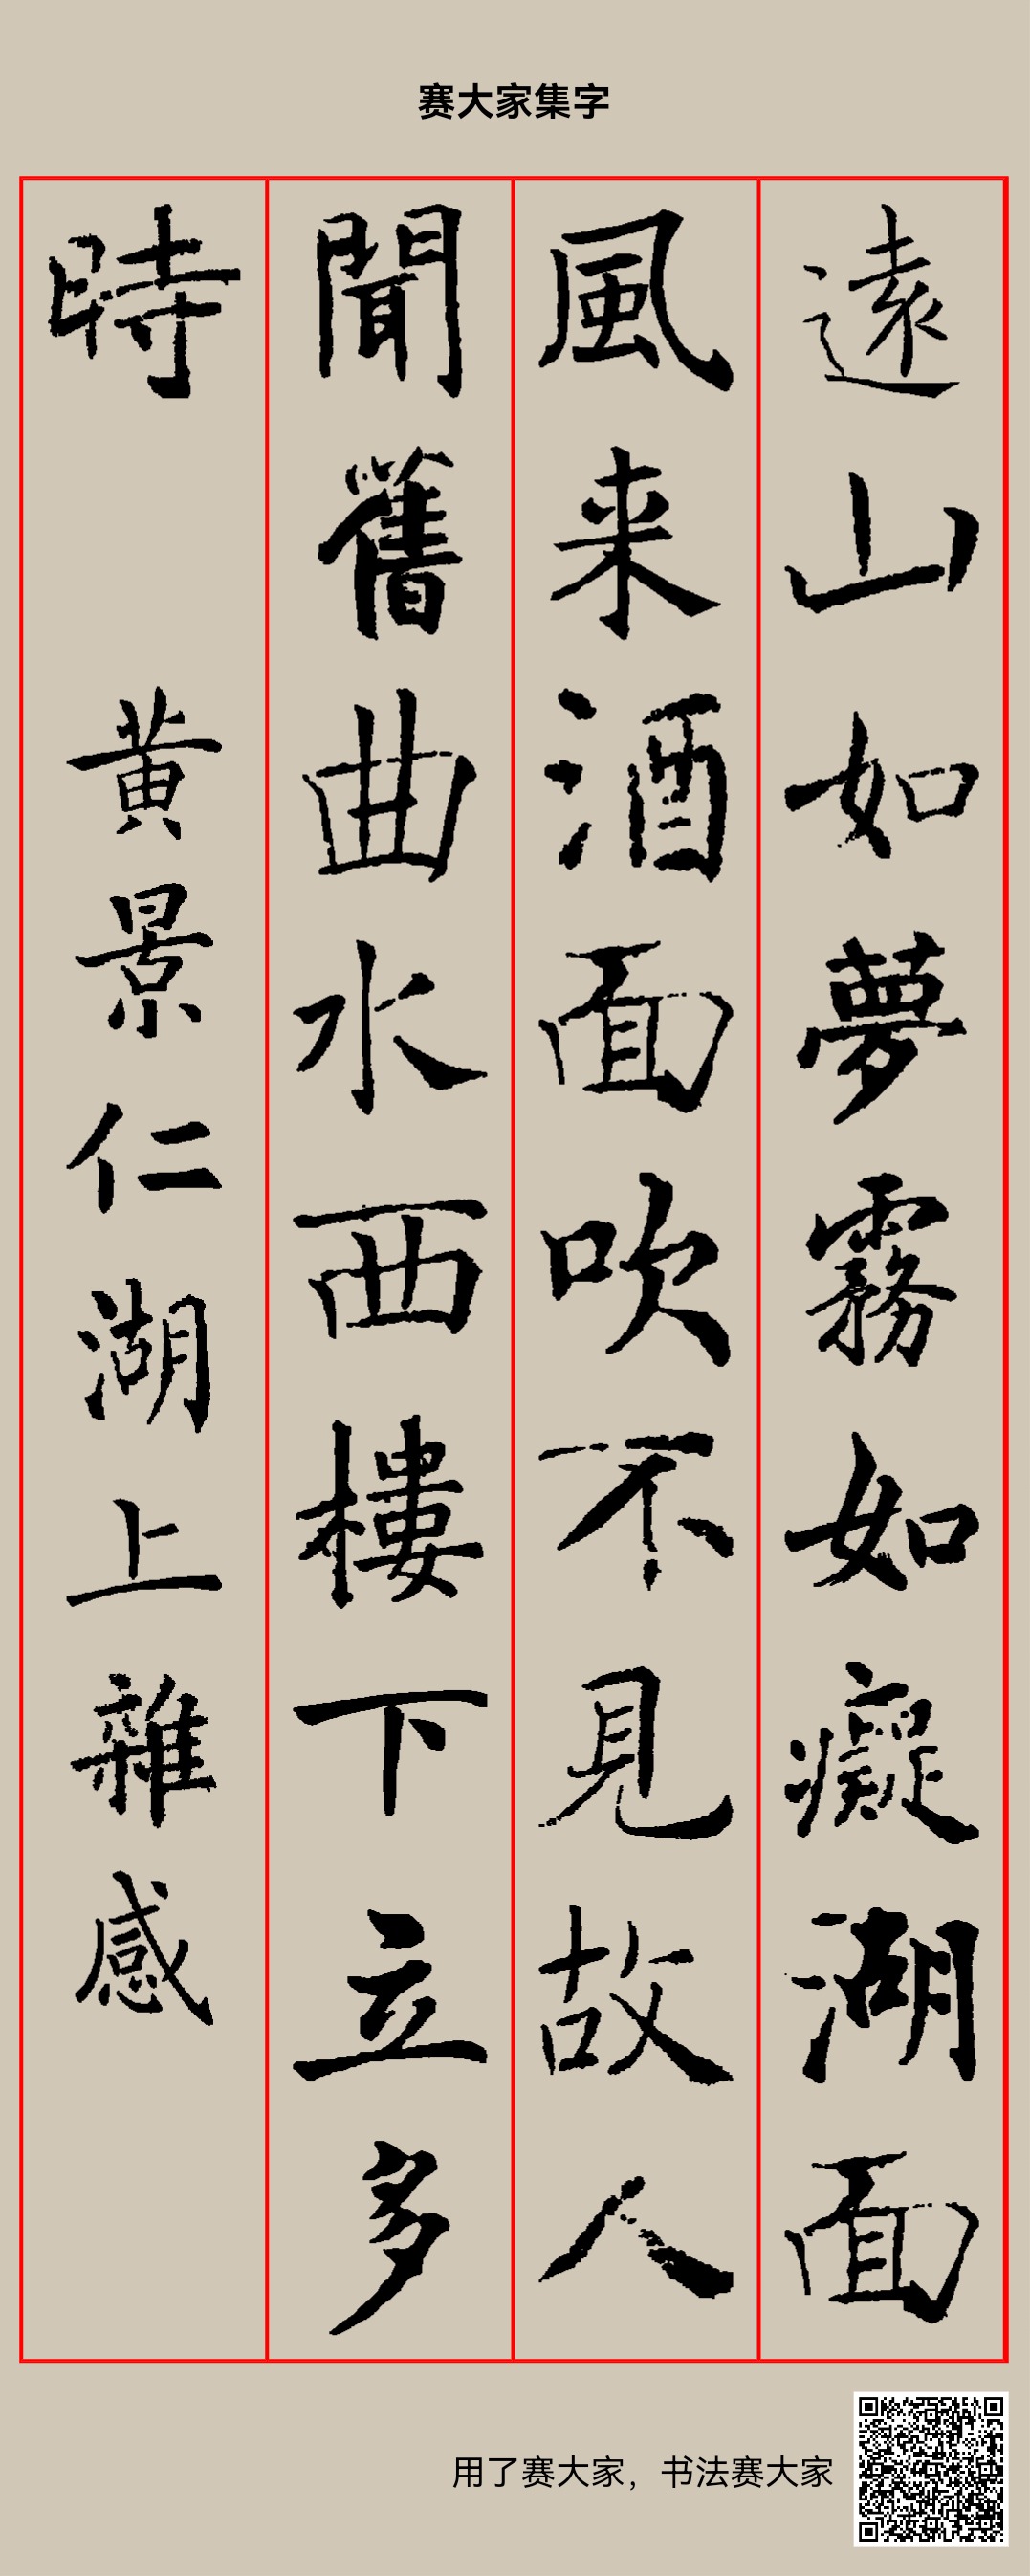 赛大家集字
遠山如夢霧如癡湖面
風来酒面吹不見故人
聞舊曲水西樓下立多
時 黄景仁湖上雜感
用了赛大家，书法赛大家